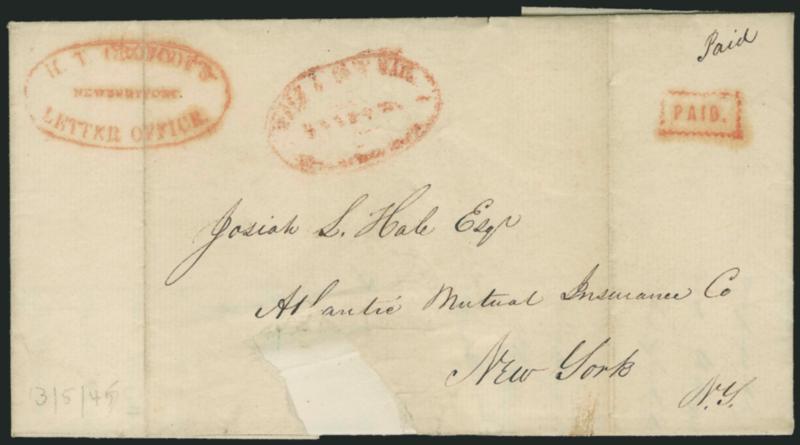 LETTER OFFICE
Paid
PAID.
Josiah L. Hale Esqr
Atlantic Mutual Insurance Co
New York
N.Y.
3/5/45